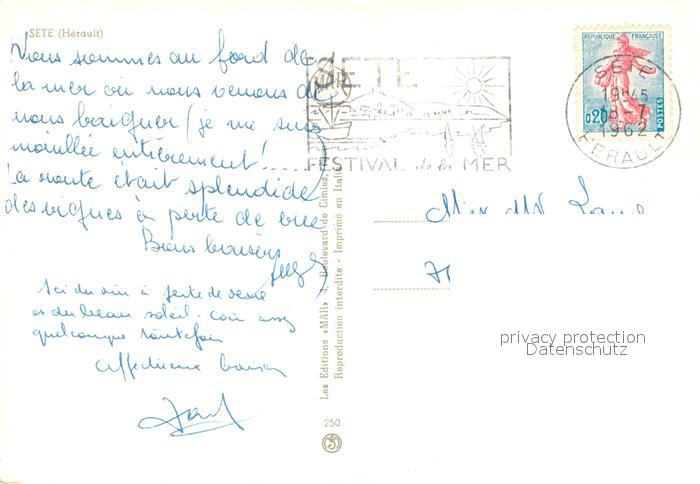 SETE (Hérault)
Nous sommes au fond de
la mer où nous venons de
nous baigner (je me suis
mouillée entièrement!.....
La route était splendide
des vignes à perte de vue
Bons baisers
Ici du vin à perte de vue
et du beau soleil. coin assez
quelconque toutefois
Affectueux baisers
Les Editions «MAR» 4, Boulevard de Cimiez,
Reproduction interdite - Imprimé en Italie
250
SETE
MAR
FESTIVAL de la MER
REPUBLIQUE FRANÇAISE
0,20
POSTES
SETE
19H45
18 - 7
1962
HERAULT
privacy protection
Datenschutz